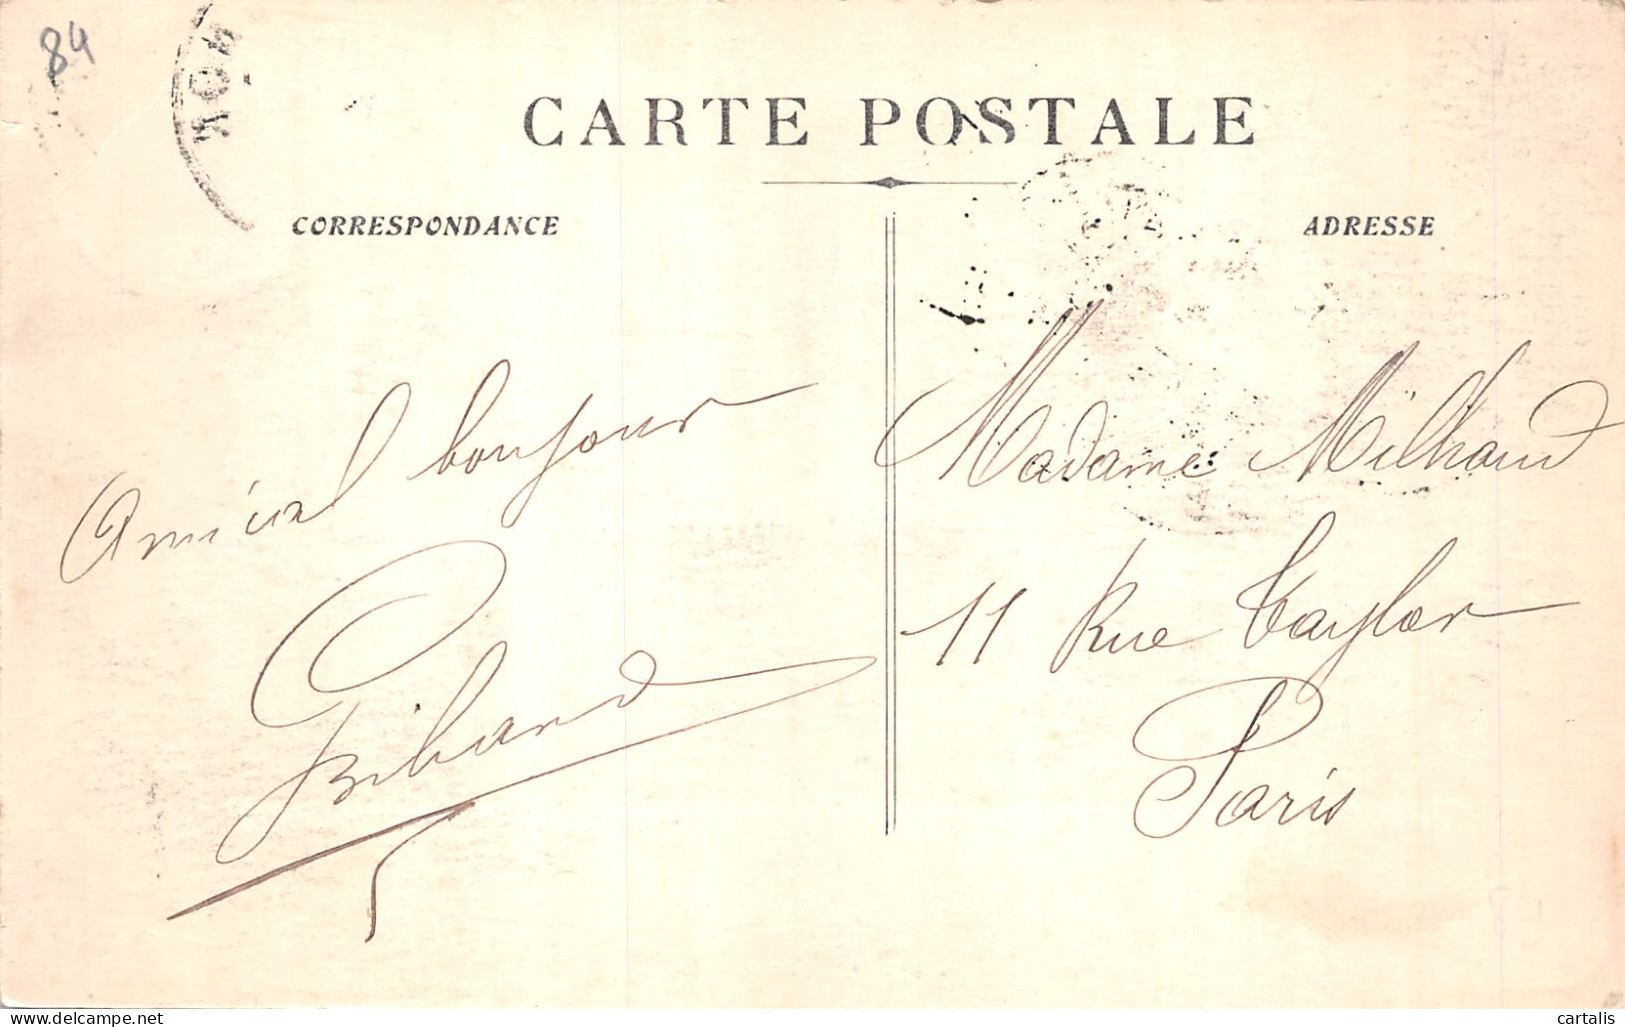 84
CARTE POSTALE
CORRESPONDANCE
ADRESSE
Amical bonjour
Madame Milhaud
11 Rue Taylor
Paris
www.delcampe.net
cartalis